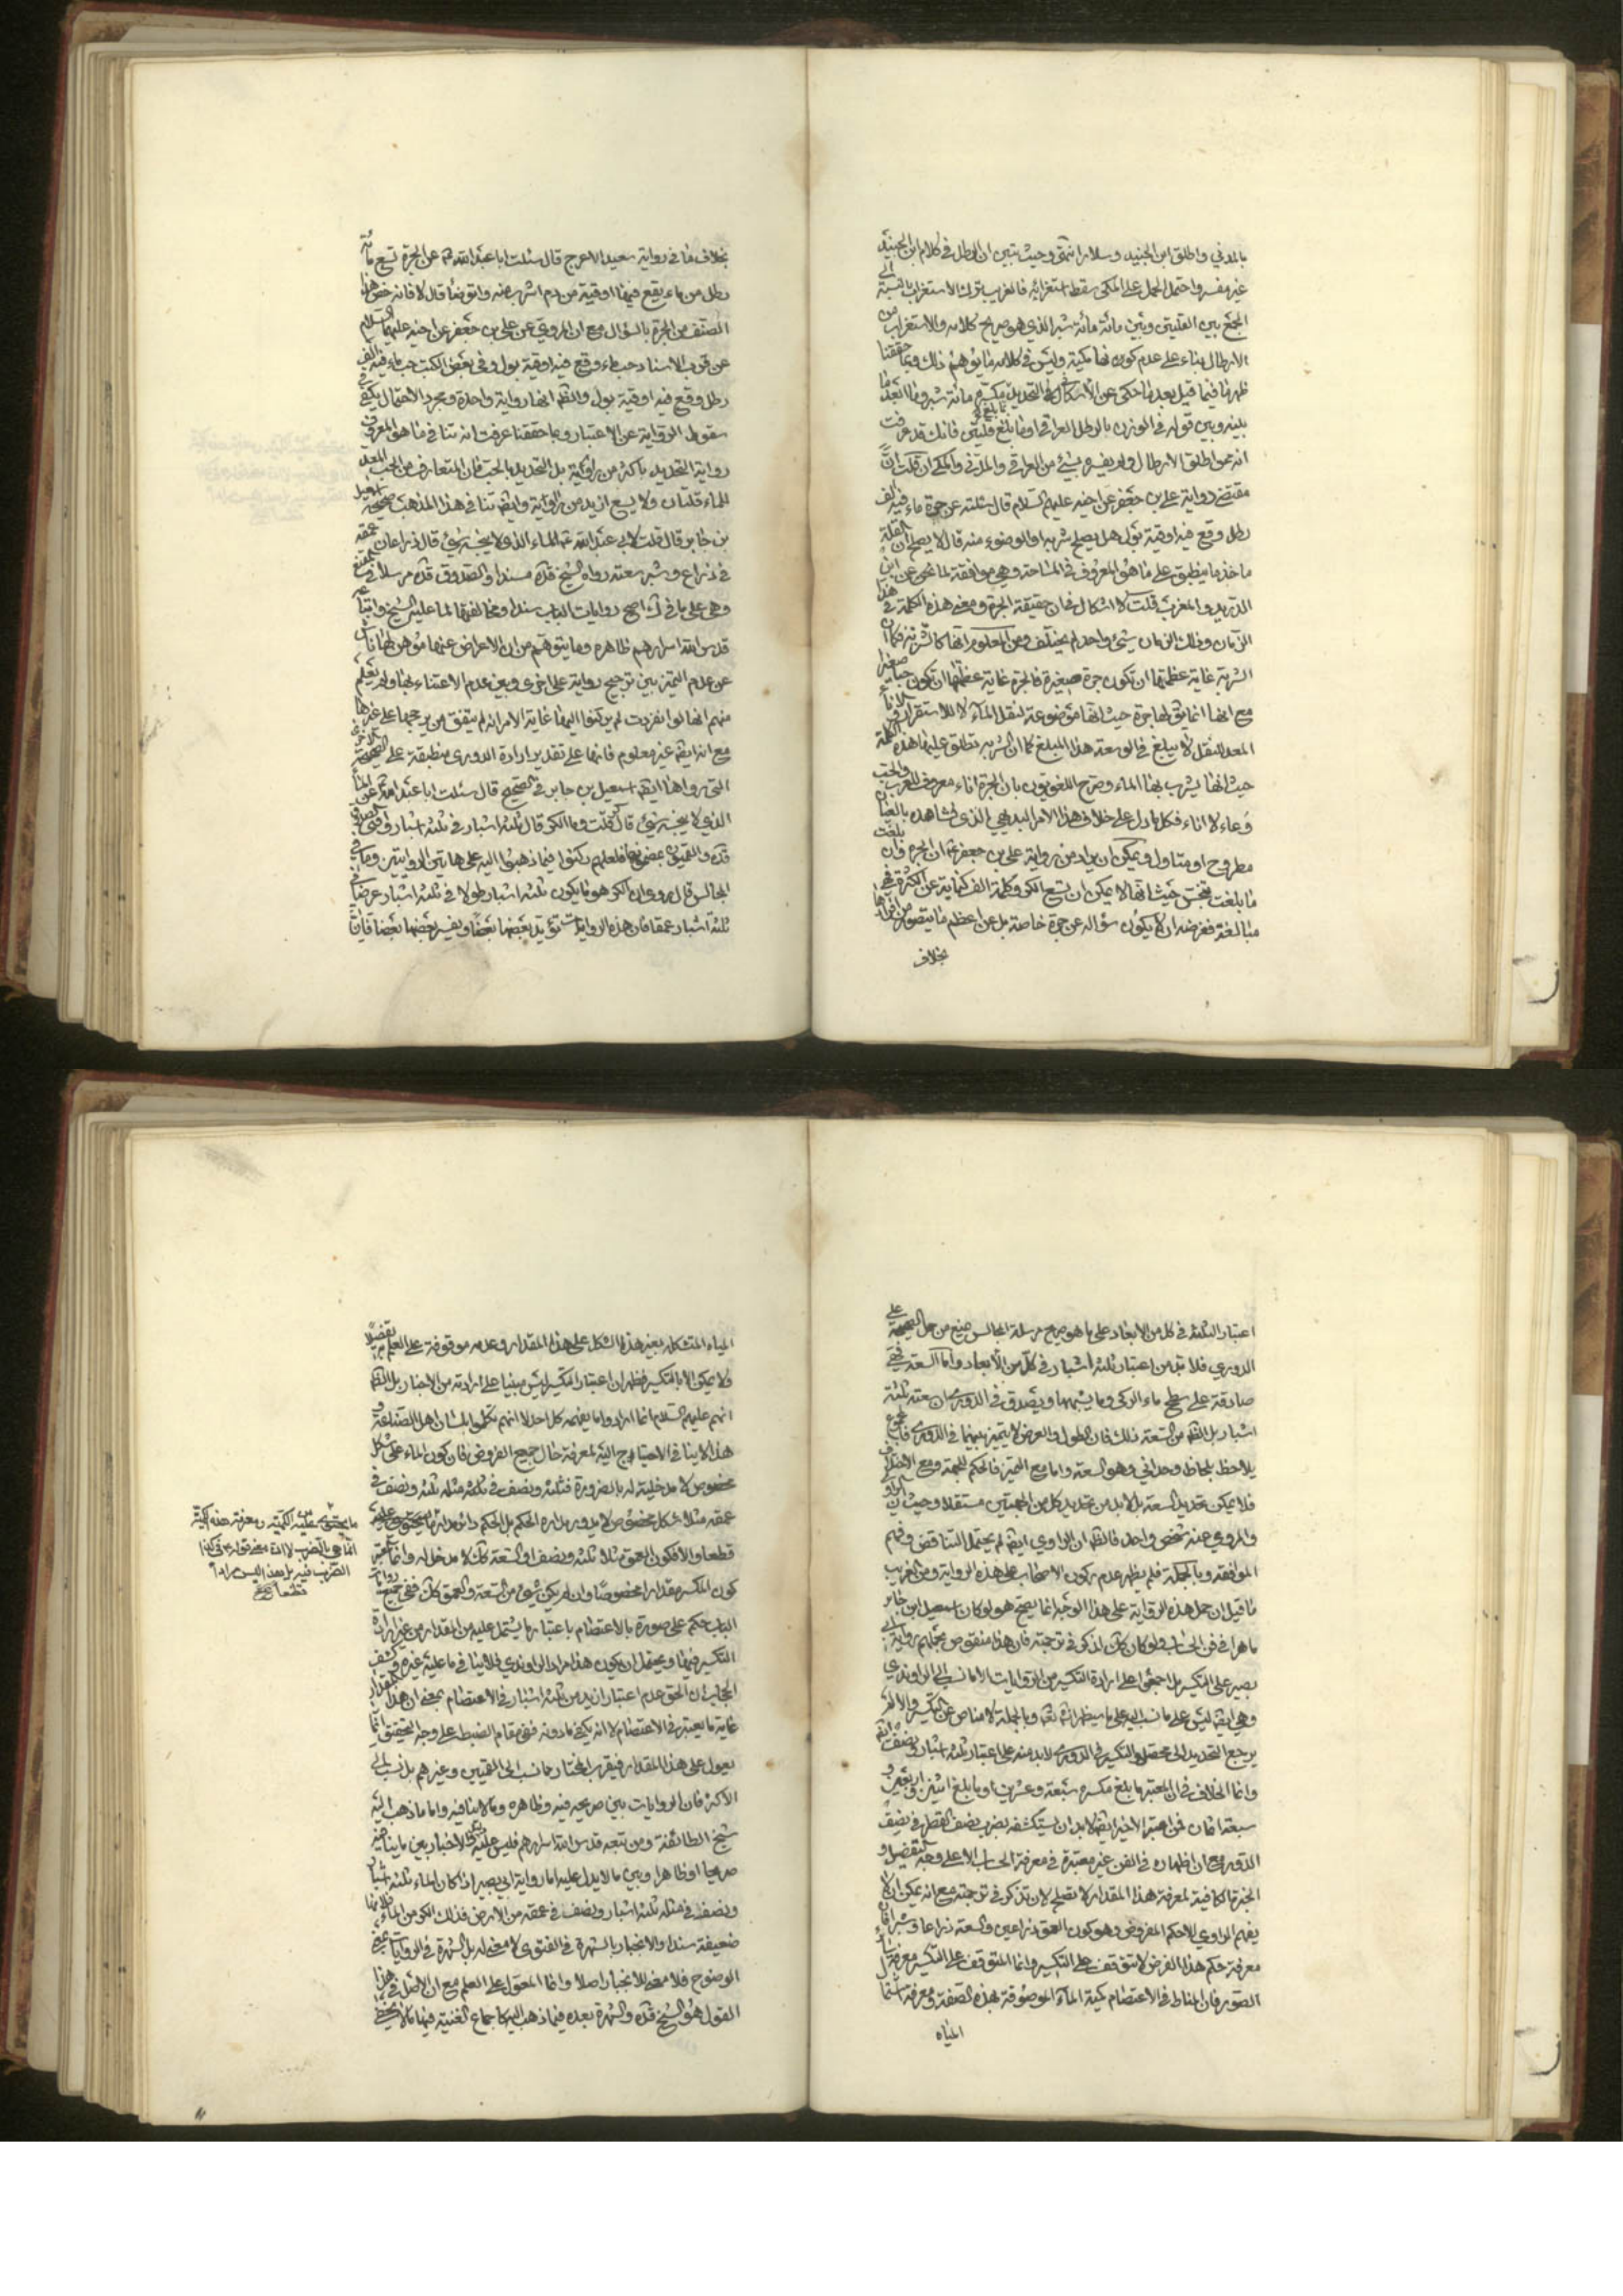 بالمدني واطلق ابن الجنيد وسلار انتهى وحيث تبين ان الرطل في كلام ابن الجنيد
غير مفسر واحتمل الحمل على المكي سقط استغرابه فالغريب ترك الاستغراب بالنسبة الى
الجمع بين القلتين وبين مائة مائة شبر الذي هو صريح كلامه والاستغراب من
الارطال بناء على عدم كونها مكية وليس في كلامه ما يوهم ذلك وبما حققنا
ظهر ما فيما قيل بعد ما حكى عن الاسكافي التحديد مكسره مائة شبر وما ابعد ما
بينه وبين قوله في الوزن بالرطل العراقي او ما بلغ قلتين فانك قد عرفت
انه ممن اطلق الارطال ولم يفسره بشيء من العراقي والمدني والمكي ان قلت ان
مقتضى رواية علي بن جعفر عن اخيه عليهم السلام قال سئلته عن جرة ماء فيه الف
رطل وقع فيه اوقية بول هل يصلح شربه او الوضوء منه قال لا يصلح ان القلة
ما خذ ما ينطبق على ما هو المعروف في المساحة وهي موافقة لما نحكي عن ابن
الدريد والمغرب قلت لا اشكال في ان حقيقة الجرة ومعنى هذه الكلمة في هذا
الزمان وذلك الزمان شيء واحد لم يختلف ومن المعلوم انها كالشربة فكما ان
الشربة غاية عظمتها ان تكون جرة صغيرة فالجرة غاية عظمها ان تكون حبا صغيرا
مع انها انما يق لها جرة حيث انها موضوعة لنقل الماء لا للاستقرار والاناء
المعد للنقل لا يبلغ في الوسعة هذا المبلغ كما ان الشربة تطلق عليها هذه الكلمة
حيث انها يشرب بها الماء وصرح اللغويون بان الجرة اناء معروف للعرب والحب
وعاء لا اناء فكل ما دل على خلاف هذا الامر البديهي الذي نشاهده بالعيان
مطروح او متاول ويمكن ان يراد من رواية علي بن جعفر ع ان الجرة وان بلغت
ما بلغت تنجس حيث انها لا يمكن ان تسع الكر وكلمة الف كناية عن الكثرة فهي
مبالغة فغرضه ان لا يكون سؤاله عن جرة خاصة بل عن اعظم ما يتصور من افرادها
بخلاف
بخلاف ما في رواية سعيد الاعرج قال سئلت ابا عبد الله ع عن الجرة تسع مائة
رطل من ماء يقع فيها اوقية من دم اشرب منه واتوضأ قال لا فانه خص هذا
الصنف من الجرة بالسؤال مع ان المروي عن علي بن جعفر عن اخيه عليهما السلام
عن قرب الاسناد حب ماء وقع فيه اوقية بول وفي بعض الكتب حب ماء فيه الف
رطل وقع فيه اوقية بول والظ انها رواية واحدة ومجرد الاحتمال يكفي في
سقوط الرواية عن الاعتبار وبما حققنا عرفت انه تنافي ما هو المعروف
رواية التحديد باكثر من راوية بل التحديد بالحب فان المتعارف من الحب المعد
للماء قلتان ولا يسع ازيد من الراوية وايض تنافي هذا المذهب صحيحة اسمعيل
بن جابر قال قلت لابي عبد الله ع الماء الذي لا ينجسه شيء قال ذراعان عمقه
في ذراع وشبر سعته رواه الشيخ قده مسندا والصدوق قده مرسلا في المقنع
وهي على ما في اصح روايات الباب سندا ومخالفتها لما عليه الشيخ واتباعه
قدس الله اسرارهم ظاهره وما يتوهم من ان الاعراض عنها موهن لها ناش
عن عدم التميز بين ترجيح رواية على اخرى وبين عدم الاعتناء بها ولم يعلم
منهم انها لو انفردت لم يركنوا اليها غاية الامر انه لم يتفق من يرجحها على غيرها
مع انه ايض غير معلوم فانها على تقدير ارادة الدوري منطبقة على الصحيحة الاخرى
التي رواها ايض اسمعيل بن جابر في الصحيح قال سئلت ابا عبد الله ع عن الماء
الذي لا ينجسه شيء قال كر قلت وما الكر قال ثلثة اشبار في ثلثة اشبار وافتى الصدوق
قده والقميون بمضمونها فلعلهم ركنوا فيما ذهبوا اليه على هاتين الروايتين وما في
المجالس قال روى ان الكر هو ما يكون ثلثة اشبار طولا في ثلثة اشبار عرضا في
ثلثة اشبار عمقا فان هذه الروايات تؤيد بعضها بعضا ويفسر بعضها بعضا فان
اعتبار الثلثة في كل من الابعاد على ما هو صريح مرسلة المجالس صنيع من حمل الصحيحة على
الدوري فلا بد من اعتبار ثلثة اشبار في كل من الابعاد واما السعة فهي
صادقة على سطح ماء الركي وما يشبهها ويصدق في الدوري ان سعته ثلثة
اشبار بل الظ من السعة ذلك فان الطول والعرض لا يتميز بينهما في الدوري فالمجموع
يلاحظ بلحاظ وحداني وهو السعة واما مع التميز فالحكم للجهة ومع الاختلاف
فلا يمكن تحديد السعة بل لا بد من تحديد كل من الجهتين مستقلا وحيث ان الراوي
والمروي عنه شخص واحد فالظ ان الراوي ايض لم يحتمل التناقض وفهم
الموافقة وبالجملة فلم يظهر عدم ركون الاصحاب على هذه الرواية ومن الغريب
ما قيل ان حمل هذه الرواية على هذا الوجه انما يصح هو لو كان اسمعيل ابن جابر
ماهرا في فن الحساب ولو كان كك لذكر في ترجمته فان هذا منقوض بحملهم رواية ابي
بصير على التكسير بل اجمعوا على ارادة التكسير من الروايات الا ما نسب الى الراوندي
وهي ايض ليس على ما نسب اليه على ما سيظهر انش تع وبالجملة لا مناص عن التكسير والا لم
يرجع التحديد الى محصل والتكسير في الدوري لابد منه على اعتبار ثلثة اشبار ونصف ايض
وانما الخلاف في ان المعتبر ما بلغ مكسره سبعة وعشرين او ما بلغ اثنين واربعين و
سبعة اثمان فمن اعتبر الاخير ايض لا بد ان يستكشفه بضرب نصف القطر في نصف
الدور مع ان المهارة في الفن غير معتبرة في معرفة الحساب الا على وجه التفصيل و
الخبرة الكافية لمعرفة هذا المقدار لا تصلح لان تذكر في ترجمته مع انه يمكن ان لا
يفهم الراوي الا حكم المفروض وهو كون العمق ذراعين والسعة ذراعا وشبرا فان
معرفة حكم هذا الفرض لا تتوقف على التكسير وانما المتوقف على التكسير معرفة سائر
الصور فان المناط في الاعتصام كمية الماء الموصوفة بهذه الصفة ومعرفة اشتمال
المياه
المياه المتشكلة بغير هذا الشكل على هذا المقدار وعدمه موقوفة على العلم به تفصيلا
ولا يمكن الا بالتكسير فظهر ان اعتبار التكسير ليس مبنيا على ارادته من الاخبار بل الظ
انهم عليهم السلام انما ارادوا ما يفهمه كل احد لا انهم تكلموا بلسان اهل الصناعة و
هذا لا ينافي الاحتياج اليه لمعرفة حال جميع الفروض فان كون الماء على شكل
مخصوص لا مدخلية له بالضرورة فثلثة ونصف في ثلثة مثله ثلثة ونصف في
عمقه مثلا شكل مخصوص لا يدور مداره الحكم بل الحكم دائر مدار ما يحتوي عليه
قطعا والا فكون العمق مثلا ثلثة ونصف او السعة كك لا مدخل له وانما المعتبر
كون المكسر مقدارا مخصوصا وان لم يكن شيء من السعة والعمق كك ففي جميع روايات
الباب حكم على صورة بالاعتصام باعتبار ما يشتمل عليه من المقدار من غير ارادة
التكسير فيها ويحتمل ان يكون هذا مراد الراوندي فلا ينافي ما عليه غيره وكشف
الحجاب ان الحق عدم اعتبار ازيد من ثلثة اشبار في الاعتصام بمعنى ان هذا المقدار
غاية ما يعتبر في الاعتصام لا انه يكفي ما دونه ففي مقام الضبط على وجه التحقيق انما
يعول على هذا المقدار فيقرب المختار مما نسب الى القميين وغيرهم بل نسب الى
الاكثر فان الروايات بين صريحه فيه وظاهره وما لا ينافيه واما ما ذهب اليه
شيخ الطائفة ومن تبعه قدس الله اسرارهم فليس عليه في الاخبار بين ما ينافيه
صريحا او ظاهرا وبين ما لا يدل عليه اما رواية ابي بصير اذا كان الماء ثلثة اشبار
ونصف في مثله ثلثة اشبار ونصف في عمقه من الارض فذلك الكر من الماء فلانها
ضعيفة سندا والانجبار بالشهرة في الفتوى لا معنى له بل الشهرة في الروايات
الوضوح فلا معنى للانجبار اصلا وانما المعول على العلم مع ان الاصل في هذا
القول هو الشيخ قده والشهرة بعده فيما ذهب اليه كاجماع الغنية فيها ما لا يخفى
ما يحتوي عليه من الكمية ومعرفة هذه الكمية
انما هي بالضرب لا ان معنى قوله في كذا
الضرب فيه بل هذا ليس مرادا
قطعا صح